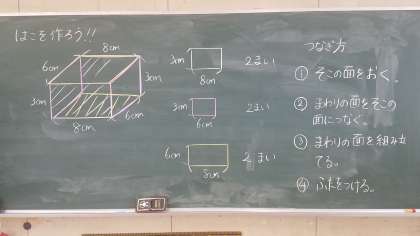 はこを作ろう!!
8cm
6cm
3cm
3cm
6cm
8cm
3cm
8cm
2まい
3cm
6cm
2まい
6cm
8cm
2まい
つなぎ方
① そこの面をおく。
② まわりの面をそこの
面につなぐ。
③ まわりの面を組み立
てる。
④ ふたをつける。